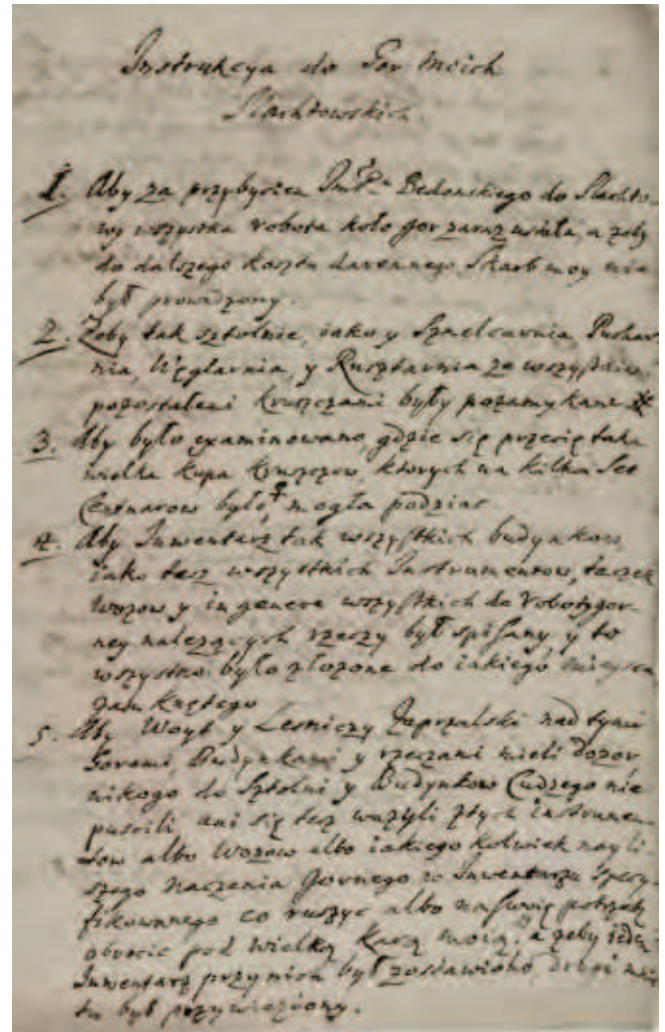 Instrukcya do Gor moich
Slachtowskich.
1. Aby za przybyciem Im P. Bedonskiego do Slachto-
wy wszystka robota koło gor zaraz ustała, a żeby
do dalszego kosztu daremnego Skarb moy nie
był prowadzony.
2. Żeby tak sztolnie, iako y Szmelcarnia, Puchar-
nia, Węglarnia, y Rusztarnia ze wszystkiemi
pozostałemi kruszczami były pozamykane
3. Aby było examinowano, gdzie się przecię taka
wielka kupa kruszczow, ktorych na kilka set
Centnarow było, mogła podziac.
4. Aby Inwentarz tak wszystkich budynkow,
iako tesz wszystkich Instrumentow, taczek
wozow y in genere wszystkich do roboty gor-
ney należących rzeczy był spisany, y to
wszystko było złożone do iakiego mieysca
zamkniętego
5. Aby Woyt y Lesniczy Zaprzalski nad tymi
Gorami, Budynkami y rzeczami mieli dozor
nikogo do Sztolni y Budynkow Cudzego nie
puscili, ani się tesz ważyli z tych instrumen-
tow albo Wozow albo iakiego kolwiek nayli-
szego naczenia gornego w Inwentarzu specy-
fikowanego co ruszyc albo na swoię potrzebę
obrocic pod wielką karą moią, a żeby ieden
Inwentarz przy nich był zostawiony, drugi mnie
tu był przywieziony.